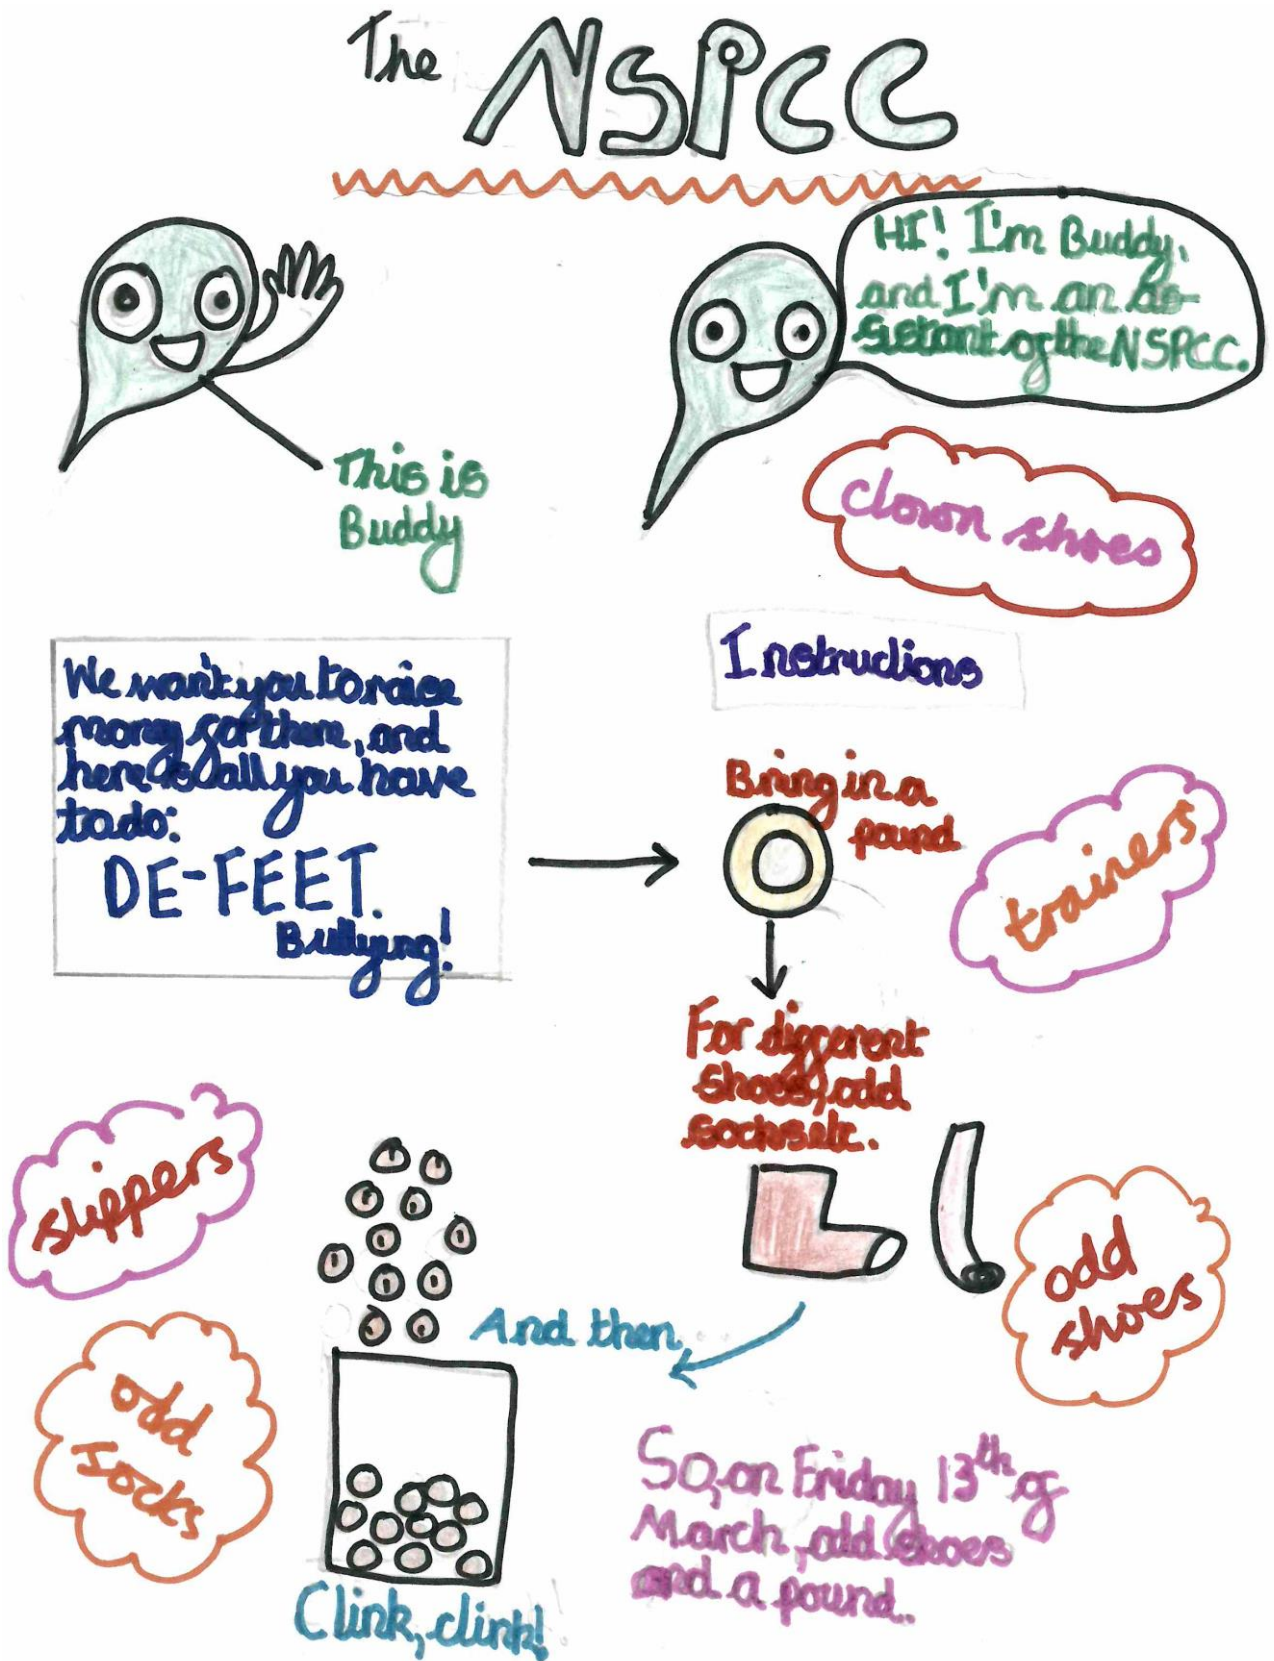 The NSPCC
HI! I'm Buddy,
and I'm an as-
sistant of the NSPCC.
This is
Buddy
clown shoes
We want you to raise
money for them, and
here is all you have
to do:
DE-FEET.
Bullying!
Instructions
Bring in a
pound
trainers
For different
shoes, odd
socks etc.
slippers
odd
shoes
And then
odd
socks
So, on Friday 13th of
March, odd shoes
and a pound.
Clink, clink!